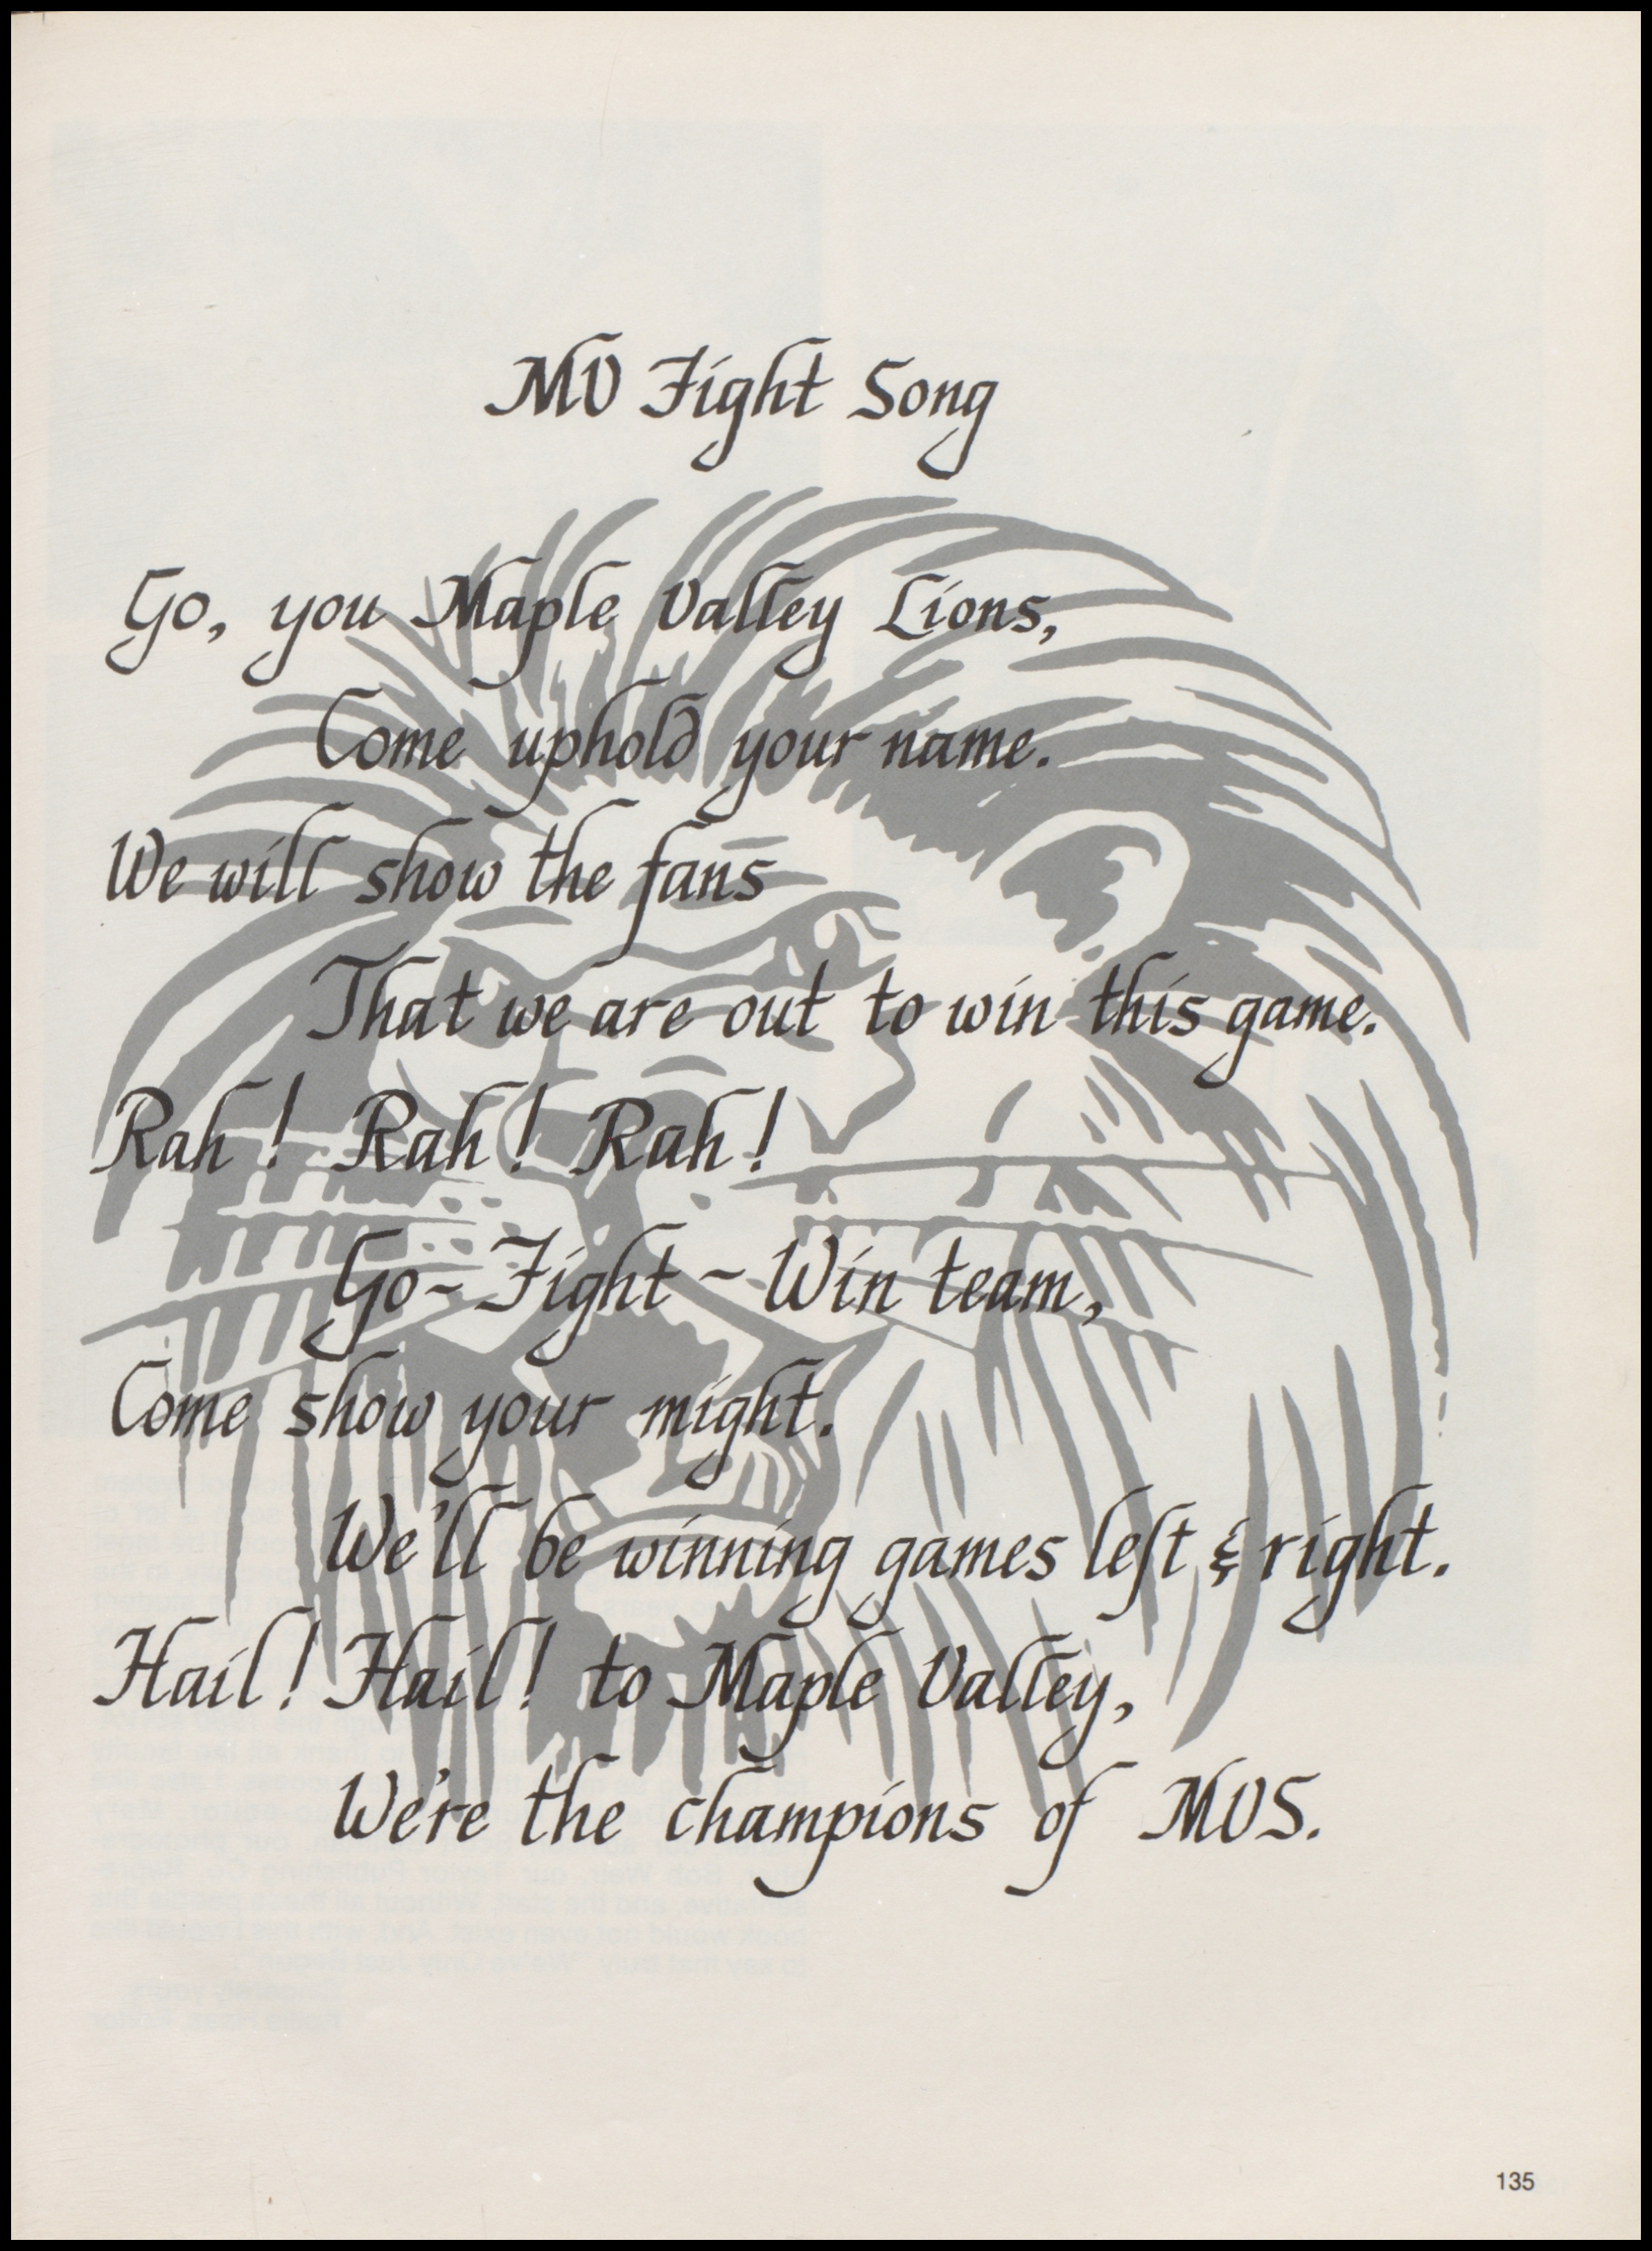 MV Fight Song
Go, you Maple Valley Lions,
Come uphold your name.
We will show the fans
That we are out to win this game.
Rah! Rah! Rah!
Go ~ Fight ~ Win team,
Come show your might.
We'll be winning games left & right.
Hail! Hail! to Maple Valley,
We're the champions of MVS.
135